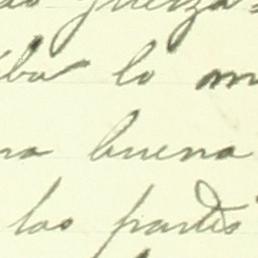 fuerza
lo m
na buena
las partes